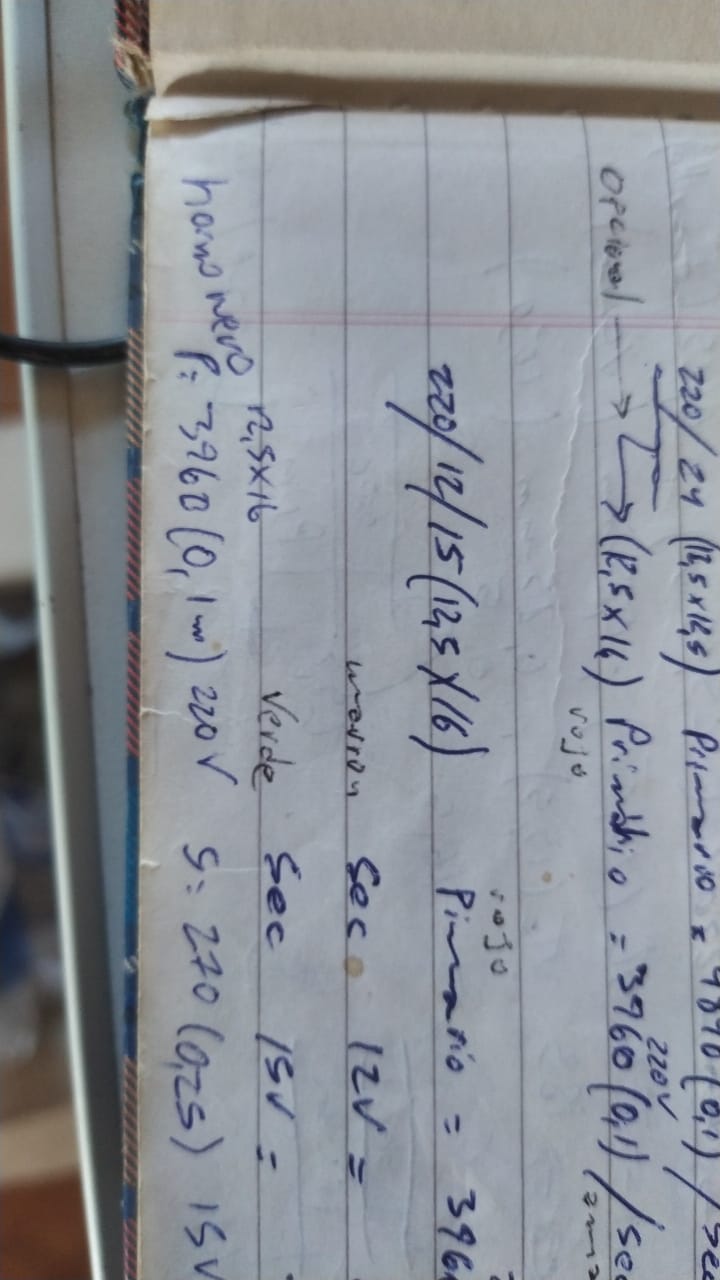 220/24 (12,5x12,5) Primario =
opcional → → (12,5x16) Primario = 3960 (0,1) / se
220V
rojo
rojo
220/12/15 (12,5x16) Primario = 396
marron Sec 12V =
Verde Sec 15V =
12,5x16
P: 3960 (0,1 mm) 220V S: 270 (0,25) 15V